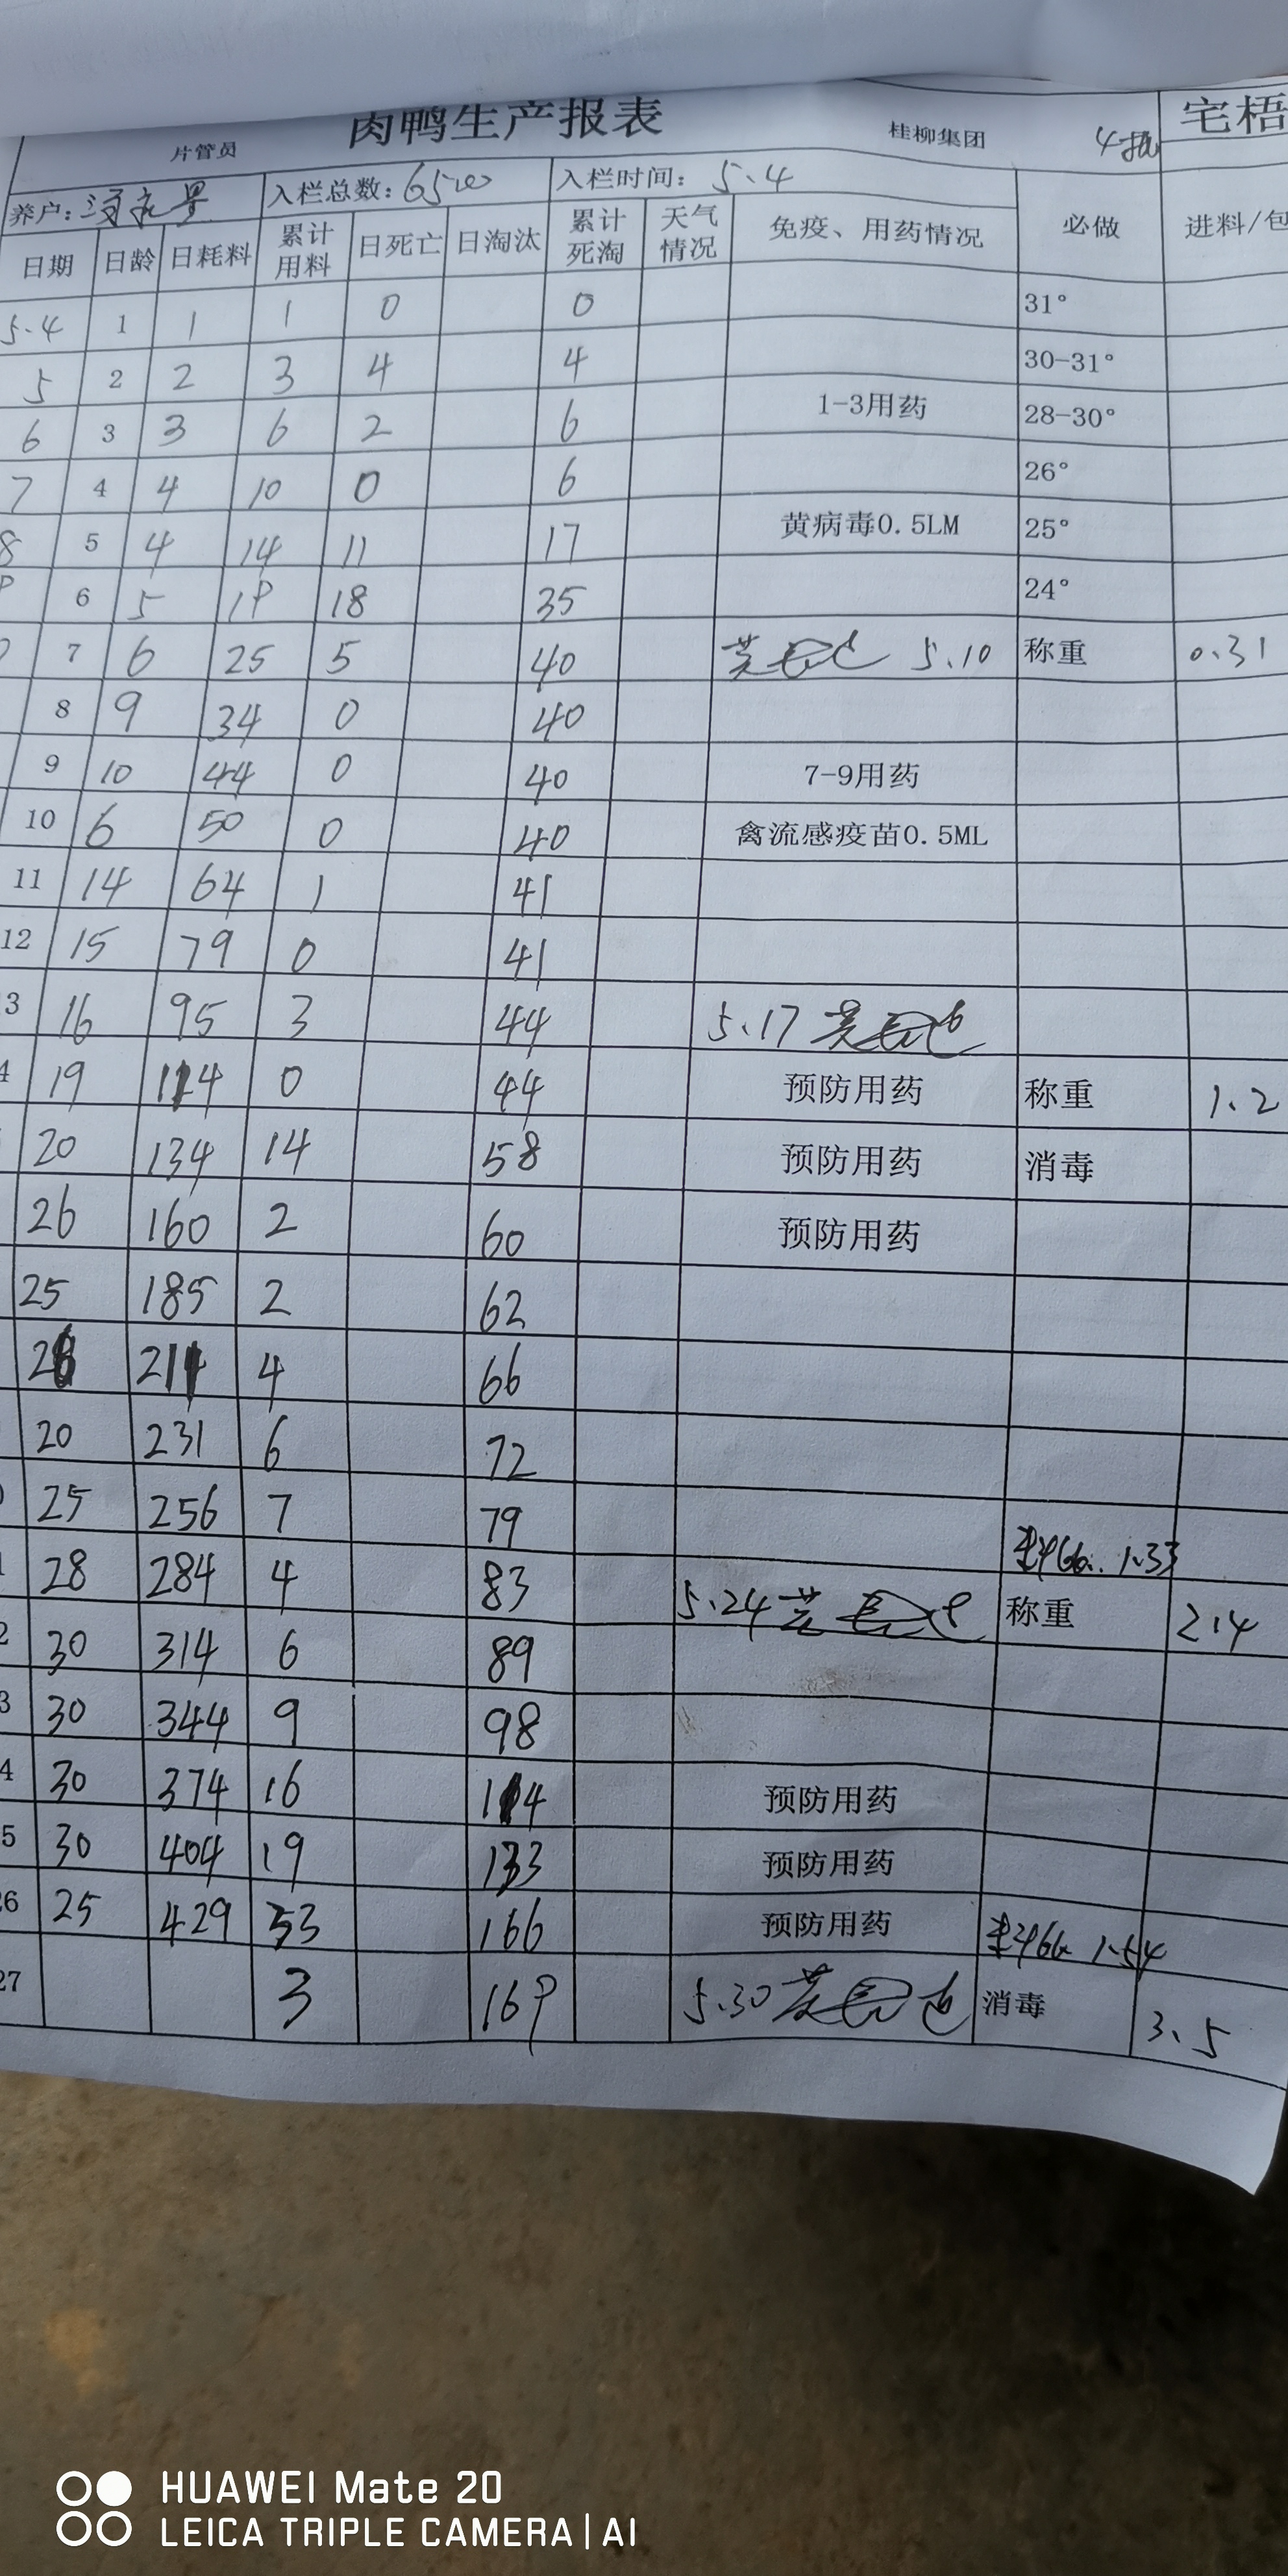 肉鸭生产报表
片管员 桂柳集团 4批 宅梧
养户: 入栏总数: 6500 入栏时间: 5.4
日期 日龄 日耗料 累计用料 日死亡 日淘汰 累计死淘 天气情况 免疫、用药情况 必做 进料/包
5.4 1 1 1 0 0 31°
5 2 2 3 4 4 30-31°
6 3 3 6 2 6 1-3用药 28-30°
7 4 4 10 0 6 26°
8 5 4 14 11 17 黄病毒0.5LM 25°
9 6 5 19 18 35 24°
7 6 25 5 40 5.10 称重 0.31
8 9 34 0 40
9 10 44 0 40 7-9用药
10 6 50 0 40 禽流感疫苗0.5ML
11 14 64 1 41
12 15 79 0 41
3 16 95 3 44 5.17
4 19 114 0 44 预防用药 称重 1.2
20 134 14 58 预防用药 消毒
26 160 2 60 预防用药
25 185 2 62
26 211 4 66
20 231 6 72
25 256 7 79
1.33
1 28 284 4 83 5.24 称重 2.4
2 30 314 6 89
3 30 344 9 98
4 30 374 16 114 预防用药
5 30 404 19 133 预防用药
26 25 429 33 166 预防用药 1.54
27 3 169 5.30 消毒 3.5
HUAWEI Mate 20
LEICA TRIPLE CAMERA | AI